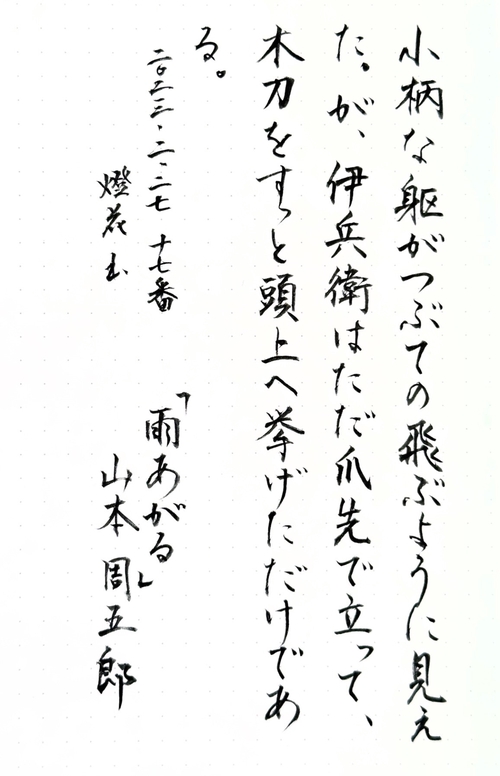 小柄な躯がつぶての飛ぶように見え
た。が、伊兵衛はただ爪先で立って、
木刀をすっと頭上へ挙げただけであ
る。
二〇二三・二・二七 十七番
燈花
「雨あがる」
山本周五郎